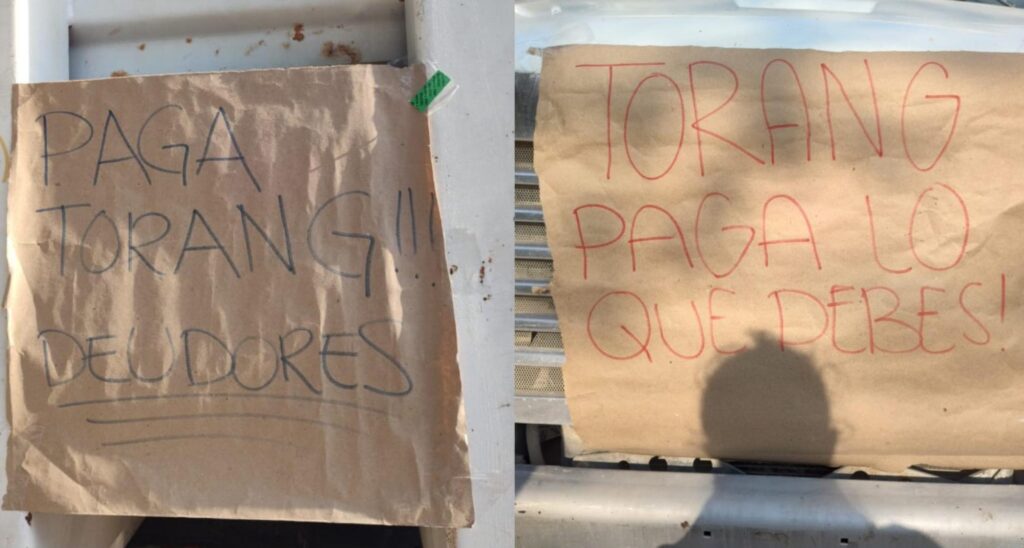 PAGA
TORANG!!!
DEUDORES
TORANG
PAGA LO
QUE DEBES!